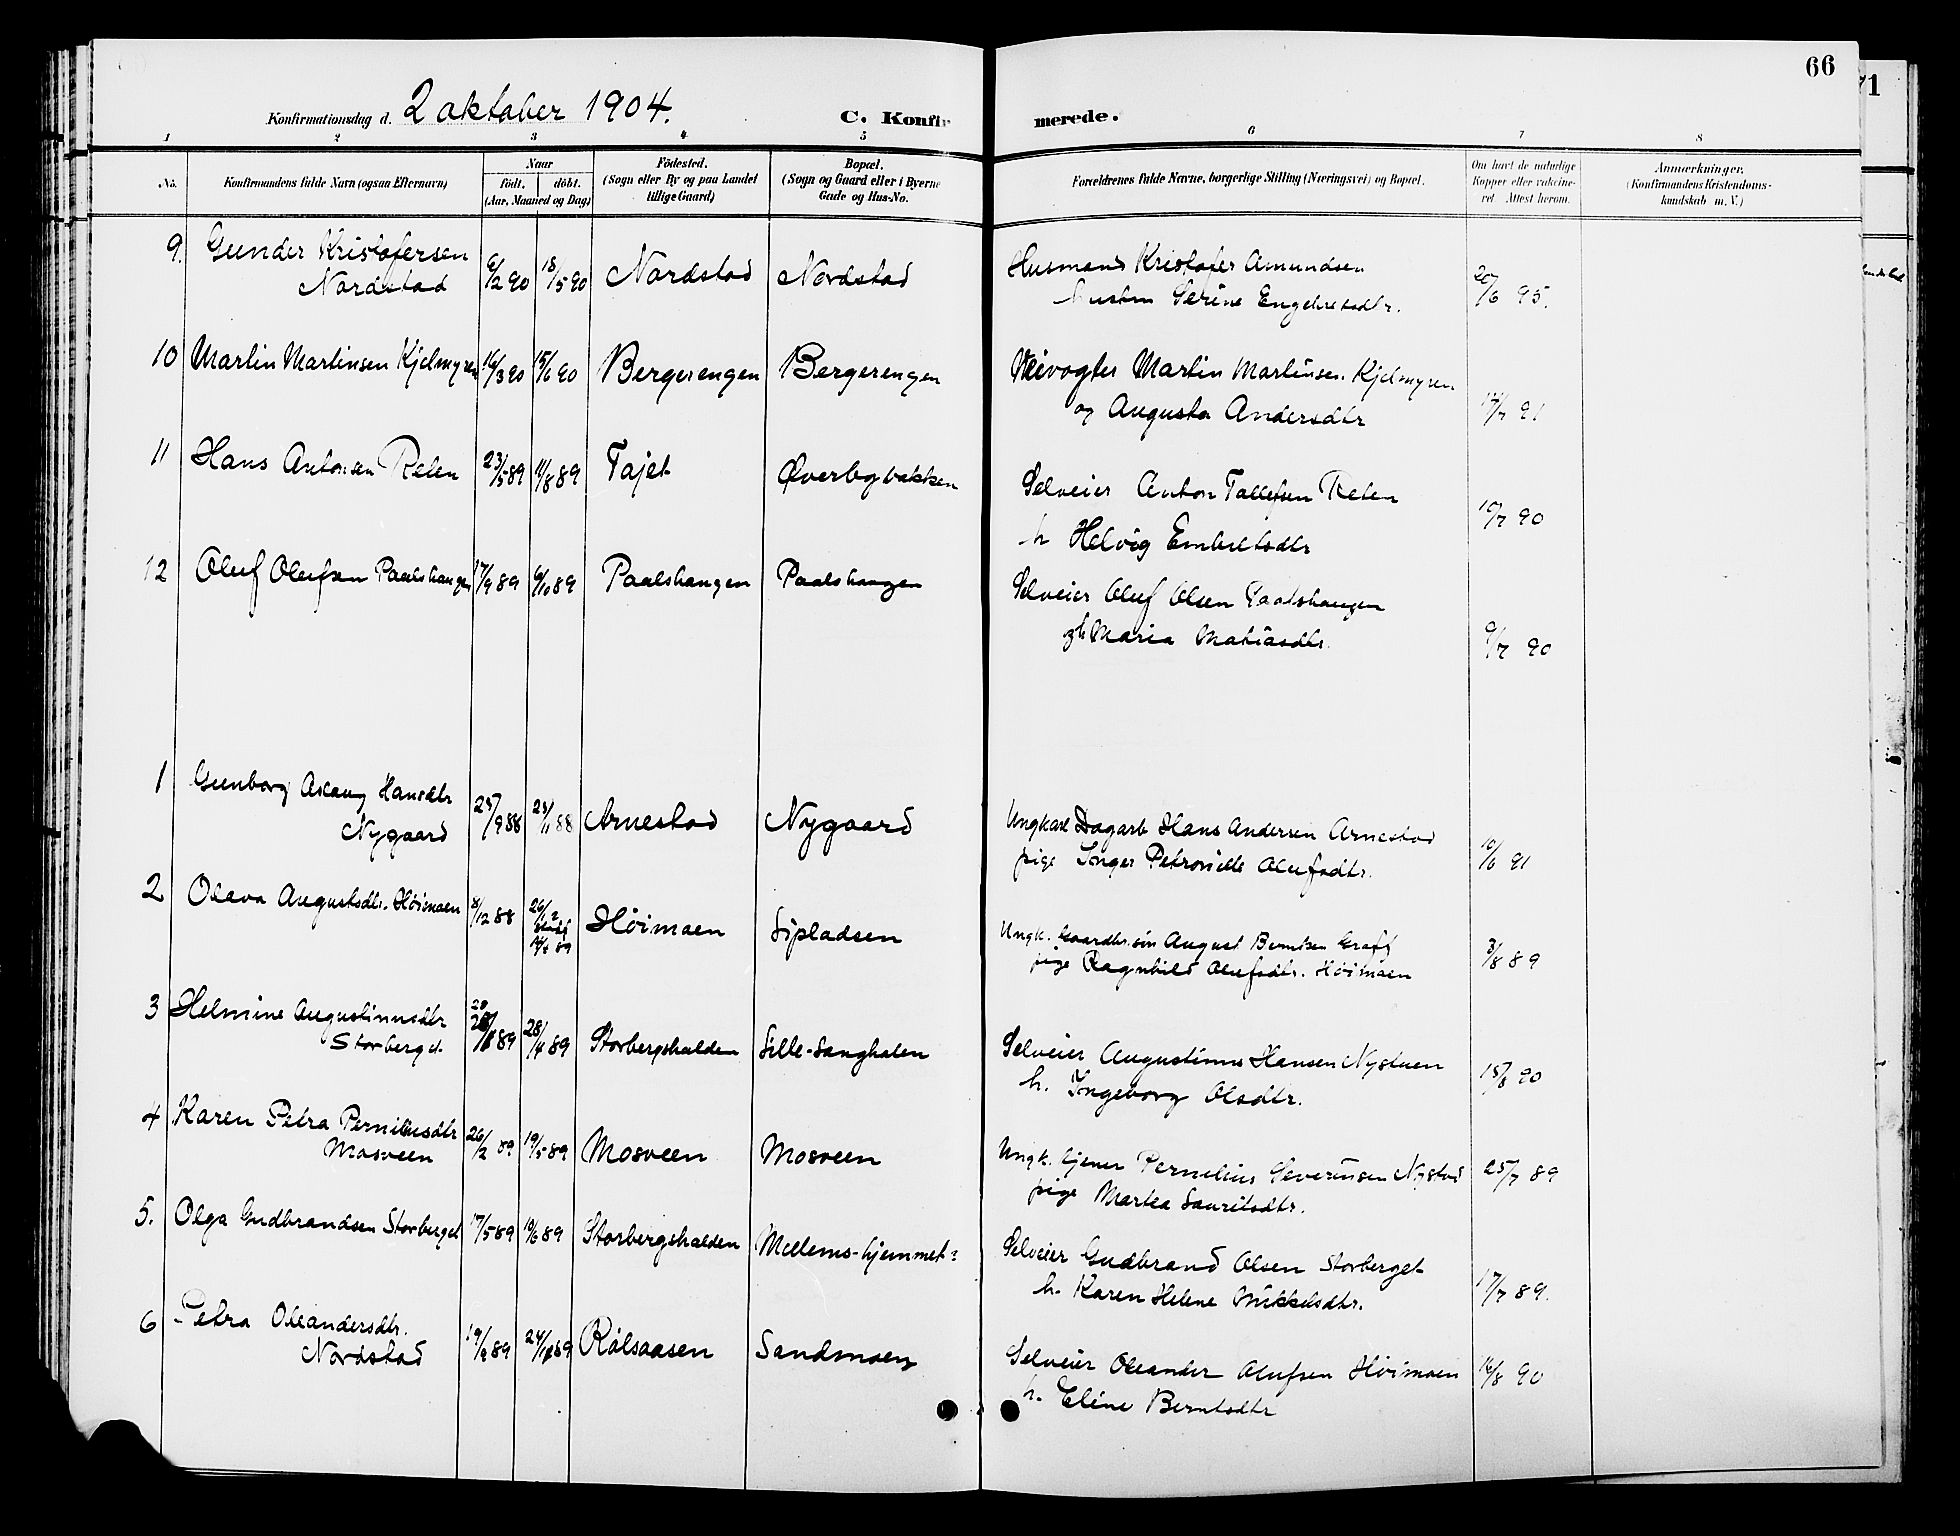 66
71
Konfirmationsdag d. 2 oktober 1904.
C. Konfirmerede.
1 2 3 4 5 6 7 8
No. Konfirmandens fulde Navn (ogsaa Efternavn)
Naar
født. døbt.
(Aar, Maaned og Dag)
Fødested.
(Sogn eller By og paa Landet
tillige Gaard)
Bopæl.
(Sogn og Gaard eller i Byerne
Gade og Hus-No.
Forældrenes fulde Navne, borgerlige Stilling (Næringsvei) og Bopæl.
Om havt de naturlige
Kopper eller vakcine-
ret. Attest herom.
Anmærkninger.
(Konfirmandens Kristendoms-
kundskab m. V.)
9. Gunder Kristofersen
Nordstad 6/2 90 18/5 90 Nordstad Nordstad
Husmand Kristofer Amundsen
hustru Serine Engebretsdtr. 20/6 95.
10 Martin Martinsen Kjelmyren 16/3 90 15/6 90 Bergerengen Bergerengen
Veivogter Martin Martinsen Kjelmyren
og Augusta Andersdtr 14/7 91
11 Hans Antonsen Reten 23/5 89 11/8 89 Tajet Øverbybakken
Selveier Anton Tollefsen Reten
h Helvig Embretsdtr 10/7 90
12 Oluf Olufsen Paalshaugen 17/9 89 6/10 89 Paalshaugen Paalshaugen
Selveier Oluf Olsen Paalshaugen
h Maria Matiasdtr. 9/7 90
1 Gunborg Aslaug Hansdtr
Nygaard 25/9 88 25/11 88 Arnestad Nygaard
Ungkarl Dagarb Hans Andersen Arnestad
pige Inger Petronille Olufsdtr. 10/6 91
2 Oleva Augustsdtr. Høimoen 8/12 88 26/12 Høimoen Sipladsen
Ungk. Gaardbr.søn August Berntsen Graff
pige Ragnhild Olufsdtr. Høimoen 3/8 89
3 Helmine Augustinusdtr
Storberget 89 28/4 89 Storbergshalden Lille-Sanghalen
Selveier Augustinus Hansen Nystuen
h. Ingeborg Olsdtr. 15/8 90
4 Karen Petra Perniliusdtr
Mosveen 26/2 89 19/5 89 Mosveen Mosveen
Ungk. tjener Pernilius Severinsen Nystad
pige Martea Lauritsdtr. 25/7 89
5. Olga Gudbrandsen Storberget 17/5 89 10/6 89 Storbergshalden Mellems-hjemmet
Selveier Gudbrand Olsen Storberget
h. Karen Helene Mikkelsdtr. 17/7 89.
6 Petra Oleandersdtr.
Nordstad 19/9 89 24/11 89 Rålsaasen Sandmoen
Selveier Oleander Olufsen Høimoen
h. Eline Berntsdtr 16/8 90